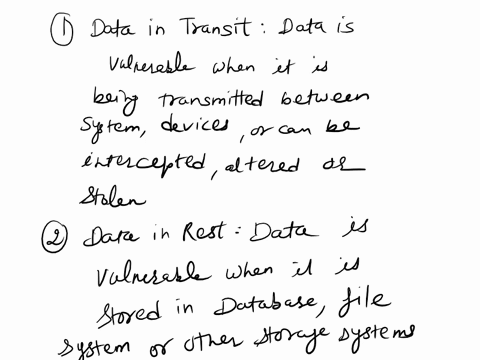 ① Data in Transit : Data is
vulnerable when it is
being transmitted between
system, devices, or can be
intercepted, altered or
stolen
② Data in Rest : Data is
vulnerable when it is
stored in Database, file
system or other storage systems